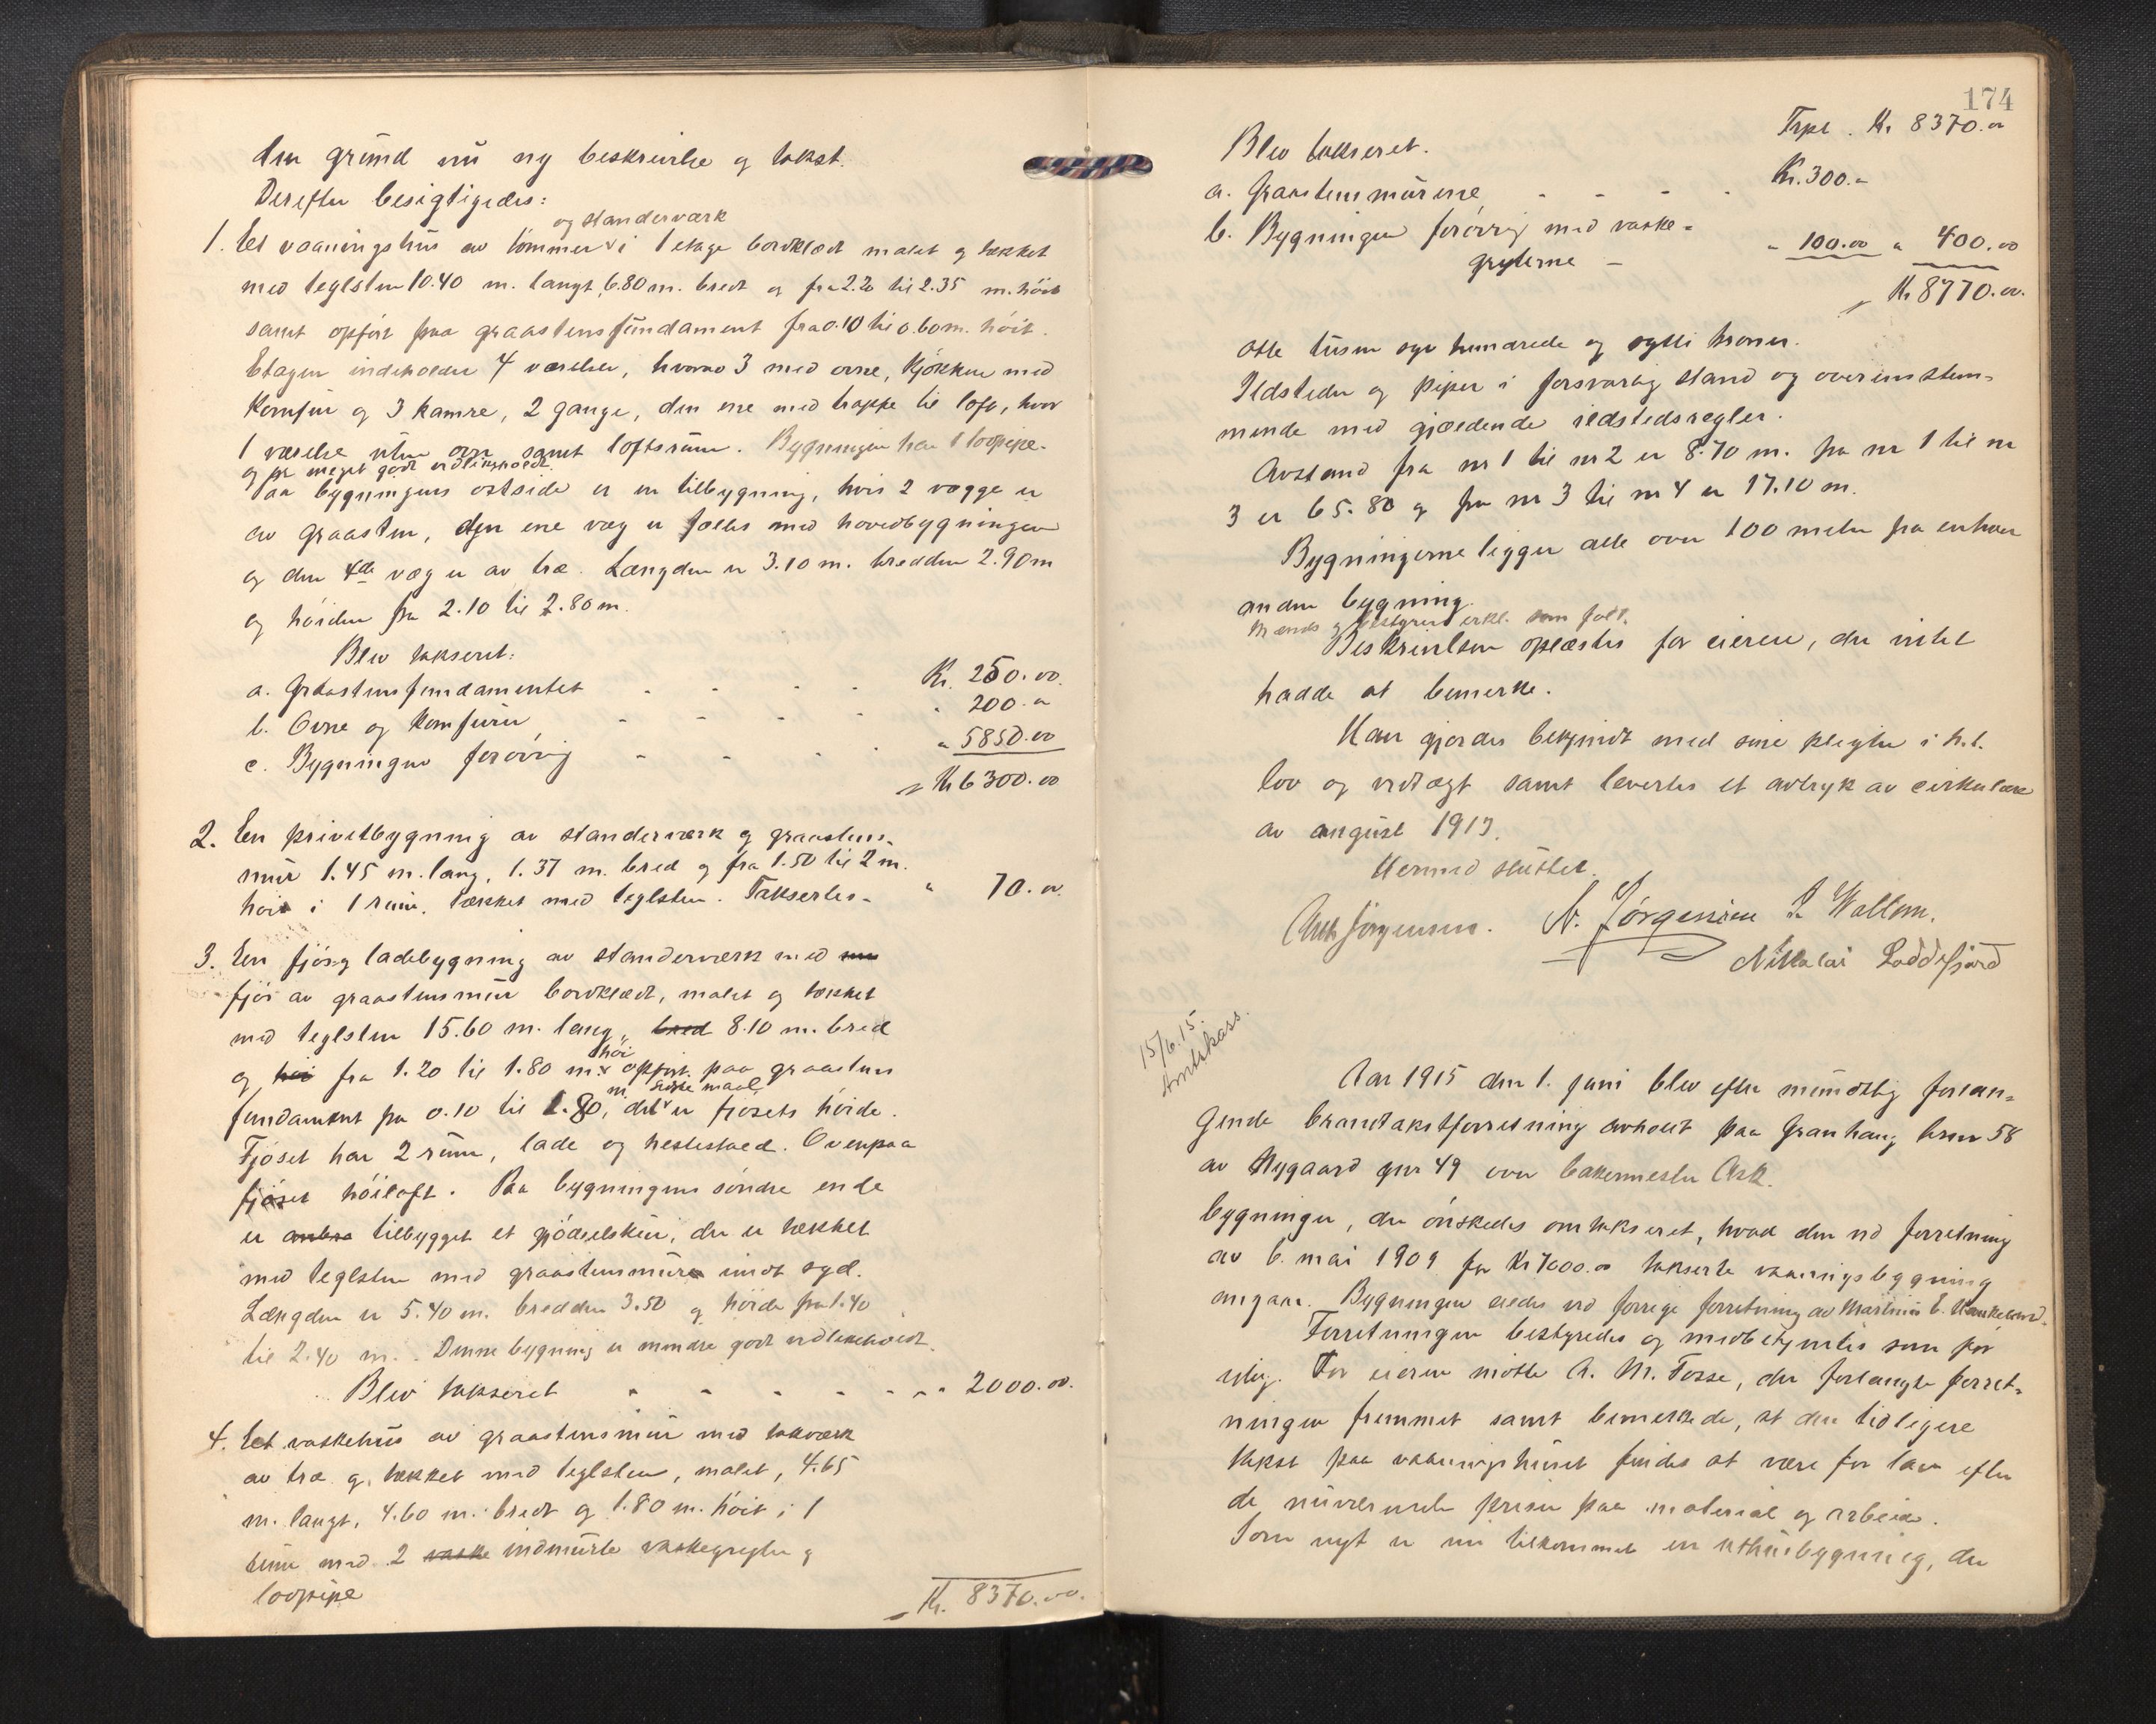 den grund nu ny beskrivelse og takst.
Derefter besigtigedes:
og standerværk
1. Et vaaningshus av tømmer i 1 etage bordklædt malet og tækket
med teglsten 10.40 m. langt, 6.80 m. bredt og fra 2.20 til 2.35 m. høit
samt opført paa graastensfundament fra 0.10 til 0.60 m. høit.
Etagen indeholder 4 værelser, hvorav 3 med ovne, kjøkken med
komfur og 3 kamre, 2 gange, den ene med trappe til loft, hvor
1 værelse uten ovn samt loftsrum. Bygningen har 1 løpipe.
og er meget godt vedlikeholdt.
Paa bygningens østside er en tilbygning, hvis 2 vægge er
av graasten, den ene væg er fælles med hovedbygningen
og den 4de væg er av træ. Længden er 3.10 m. bredden 2.90 m
og høiden fra 2.10 til 2.80 m.
Blev takseret:
a. Graastensfundamentet - - - - Kr. 250.00.
b. Ovne og komfurer - - - - " 200.00
c. Bygningen forøvrig - - - - " 5850.00
Kr 6300.00
2. En privetbygning av standerværk og graastens-
mur 1.45 m. lang, 1.37 m. bred og fra 1.50 til 2 m.
høi i 1 rum, tækket med teglsten. Takseres - " 70.00.
3. En fjøs og ladebygning av standerværk med
fjøs av graastensmur bordklædt, malet og tækket
med teglsten 15.60 m. lang, bred 8.10 m. bred
høi
og høi fra 1.20 til 1.80 m. opført paa graastens
m. sidste maal
fundament fra 0.10 til 1.80, det er fjøsets høide.
Fjøset har 2 rum, lade og hestestald. Ovenpaa
fjøset høiloft. Paa bygningens søndre ende
er tilbygget et gjødselskur, der er tækket
med teglsten med graastensmur imot syd.
Længden er 5.40 m. bredden 3.50 og høide fra 1.40
til 2.40 m. Denne bygning er mindre godt vedlikeholdt.
Blev takseret - - - - - - " 2000.00.
4. Et vaskehus av graastensmur med takværk
av træ og tækket med teglsten, malet, 4.65
m. langt, 4.60 m. bredt og 1.80 m. høit i 1
rum med 2 vaske indmurte vaskegryter og
løpipe
Kr. 8370.00.
174
Trpt. Kr 8370.00
Blev takseret.
a. Graastensmurene - - - - Kr. 300.-
b. Bygningen forøvrig med vaske-
gryterne - " 100.00 " 400.00
Kr 8770.00.
otte tusen syv hundrede og sytti kroner.
Ildsteder og piper i forsvarlig stand og overensstem-
mende med gjældende ildstedsregler.
Avstand fra nr 1 til nr 2 er 8.70 m. fra nr 1 til nr
3 er 65.80 og fra nr 3 til nr 4 er 17.10 m.
Bygningerne ligger alle over 100 meter fra enhver
anden bygning.
Mænds og bestyrers erkl. som fold.
Beskrivelsen oplæstes for eieren, der intet
hadde at bemerke.
Han gjordes bekjendt med sine pligter i h.t.
lov og vedtægt samt levertes et avtryk av cirkulære
av august 1913.
Hermed sluttet.
Jørgensen. N. Jørgensen P. Waltem.
Nikolai Loddefjord
15/6.15.
Brandtkass.
Aar 1915 den 1. juni blev efter mundtlig forlan-
gende brandtakstforretning avholdt paa Granhaug brnr 58
av Nygaard gnr 49 over bakermester Ask.
bygninger, der ønskedes omtakseret, hvad den ved forretning
av 6. mai 1909 for Kr 7000.00 takserte vaaningsbygning
angaar. Bygningen eiedes ved forrige forretning av Martinus E. Haukeland.
Forretningen bestyredes og medbetjentes som før
idag. For eieren møtte A. M. Fosse, der forlangte forret-
ningen fremmet samt bemerkede, at den tidligere
takst paa vaaningshuset findes at være for lav efter
de nuværende priser paa material og arbeide.
Som nyt er nu tilkommet en uthusbygning, der